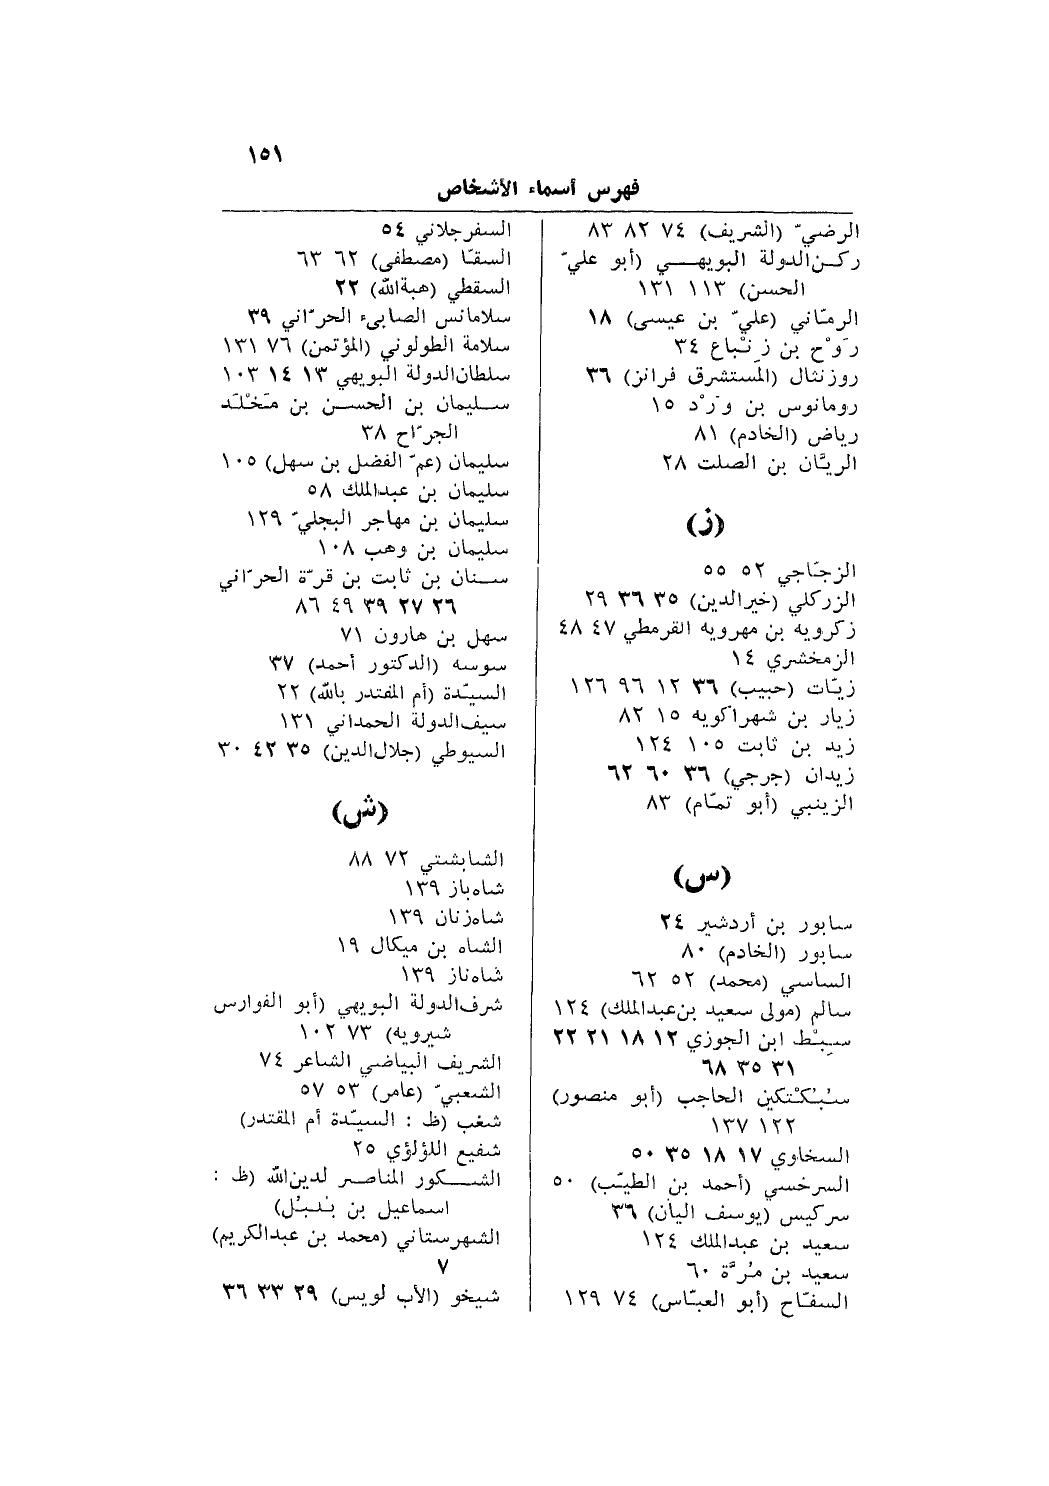 ١٥١
فهرس أسماء الأشخاص
الرضيّ (الشريف) ٧٤ ٨٢ ٨٣
ركن‌الدولة البويهــي (أبو عليّ
الحسن) ١١٣ ١٣١
الرمّاني (عليّ بن عيسى) ١٨
رَوْح بن زِنْباع ٣٤
روزنثال (المستشرق فرانز) ٣٦
رومانوس بن وَرْد ١٥
رياض (الخادم) ٨١
الريّان بن الصلت ٢٨
(ز)
الزجّاجي ٥٢ ٥٥
الزركلي (خيرالدين) ٣٥ ٣٦ ٢٩
زكرويه بن مهرويه القرمطي ٤٧ ٤٨
الزمخشري ١٤
زيّات (حبيب) ٣٦ ١٢ ٩٦ ١٢٦
زيار بن شهراكويه ١٥ ٨٢
زيد بن ثابت ١٠٥ ١٢٤
زيدان (جرجي) ٣٦ ٦٠ ٦٢
الزينبي (أبو تمّام) ٨٣
(س)
سابور بن أردشير ٢٤
سابور (الخادم) ٨٠
الساسي (محمد) ٥٢ ٦٢
سالم (مولى سعيد بن‌عبدالملك) ١٢٤
سِبْط ابن الجوزي ١٢ ١٨ ٢١ ٢٢
٣١ ٣٥ ٦٨
سُبُكْتكين الحاجب (أبو منصور)
١٢٢ ١٣٧
السخاوي ١٧ ١٨ ٣٥ ٥٠
السرخسي (أحمد بن الطيّب) ٥٠
سركيس (يوسف اليان) ٣٦
سعيد بن عبدالملك ١٢٤
سعيد بن مُرَّة ٦٠
السفّاح (أبو العبّاس) ٧٤ ١٢٩
السفرجلاني ٥٤
السقّا (مصطفى) ٦٢ ٦٣
السقطي (هبةالله) ٢٢
سلامانس الصابىء الحرّاني ٣٩
سلامة الطولوني (المؤتمن) ٧٦ ١٣١
سلطان‌الدولة البويهي ١٣ ١٤ ١٠٣
سليمان بن الحسن بن مَخْلَد
الجرّاح ٣٨
سليمان (عمّ الفضل بن سهل) ١٠٥
سليمان بن عبدالملك ٥٨
سليمان بن مهاجر البجليّ ١٢٩
سليمان بن وهب ١٠٨
سنان بن ثابت بن قرّة الحرّاني
٢٦ ٢٧ ٣٩ ٤٩ ٨٦
سهل بن هارون ٧١
سوسه (الدكتور أحمد) ٣٧
السيّدة (أم المقتدر بالله) ٢٢
سيف‌الدولة الحمداني ١٣١
السيوطي (جلال‌الدين) ٣٥ ٤٢ ٣٠
(ش)
الشابشتي ٧٢ ٨٨
شاه‌باز ١٣٩
شاه‌زنان ١٣٩
الشاه بن ميكال ١٩
شاه‌ناز ١٣٩
شرف‌الدولة البويهي (أبو الفوارس
شيرويه) ٧٣ ١٠٢
الشريف البياضي الشاعر ٧٤
الشعبيّ (عامر) ٥٣ ٥٧
شغب (ظ : السيّدة أم المقتدر)
شفيع اللؤلؤي ٢٥
الشــكور الناصر لدين‌الله (ظ :
اسماعيل بن بُلبُل)
الشهرستاني (محمد بن عبدالكريم)
٧
شيخو (الأب لويس) ٢٩ ٣٣ ٣٦